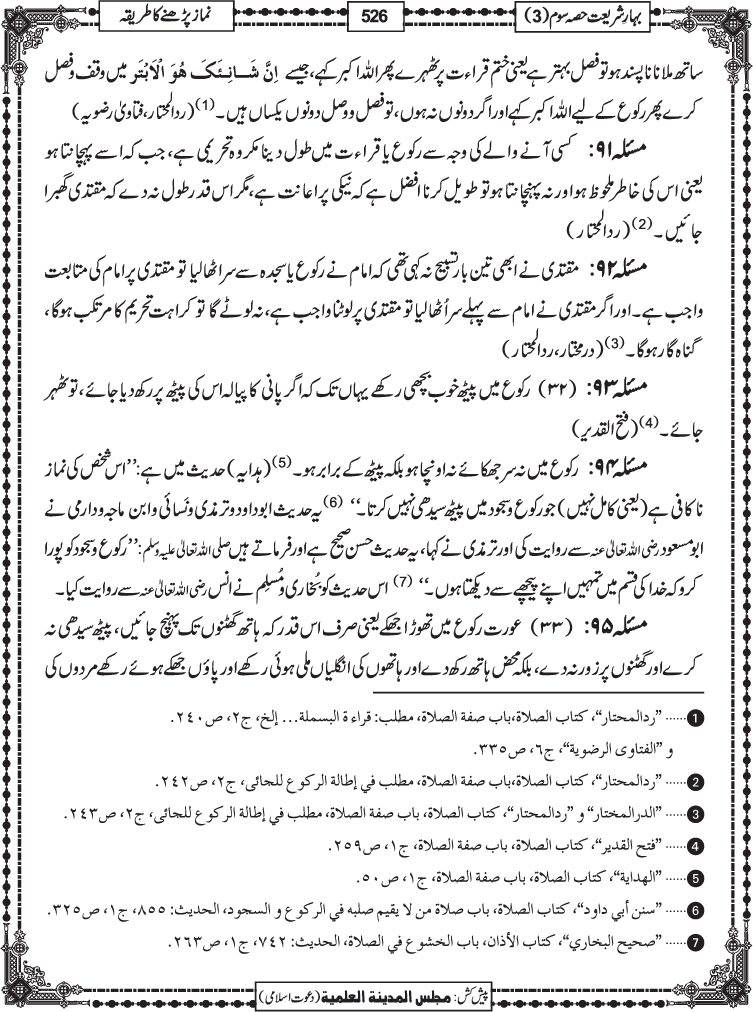 بہارِ شریعت حصہ سوم (3)
526
نماز پڑھنے کا طریقہ
ساتھ ملانا ناپسند ہو تو فصل بہتر ہے یعنی ختم قراءت پر ٹھہرے پھر اللہ اکبر کہے، جیسے اِنَّ شَانِئَکَ هُوَ الْاَبْتَر میں وقف و فصل
کرے پھر رکوع کے لیے اللہ اکبر کہے اور اگر دونوں نہ ہوں، تو فصل و وصل دونوں یکساں ہیں۔ (1) (ردالمحتار، فتاویٰ رضویہ)
مسئلہ ۹۱: کسی آنے والے کی وجہ سے رکوع یا قراءت میں طول دینا مکروہ تحریمی ہے، جب کہ اسے پہچانتا ہو
یعنی اس کی خاطر ملحوظ ہو اور نہ پہچانتا ہو تو طویل کرنا افضل ہے کہ نیکی پر اعانت ہے، مگر اس قدر طول نہ دے کہ مقتدی گھبرا
جائیں۔ (2) (ردالمحتار)
مسئلہ ۹۲: مقتدی نے ابھی تین بار تسبیح نہ کہی تھی کہ امام نے رکوع یا سجدہ سے سر اٹھا لیا تو مقتدی پر امام کی متابعت
واجب ہے۔ اور اگر مقتدی نے امام سے پہلے سر اُٹھا لیا تو مقتدی پر لوٹنا واجب ہے، نہ لوٹے گا تو کراہت تحریم کا مرتکب ہوگا،
گناہ گار ہوگا۔ (3) (درمختار، ردالمحتار)
مسئلہ ۹۳: (۳۲) رکوع میں پیٹھ خوب بچھی رکھے یہاں تک کہ اگر پانی کا پیالہ اس کی پیٹھ پر رکھ دیا جائے، تو ٹھہر
جائے۔ (4) (فتح القدیر)
مسئلہ ۹۴: رکوع میں نہ سر جھکائے نہ اونچا ہو بلکہ پیٹھ کے برابر ہو۔ (5) (ہدایہ) حدیث میں ہے: ’’اس شخص کی نماز
ناکافی ہے (یعنی کامل نہیں) جو رکوع و سجود میں پیٹھ سیدھی نہیں کرتا۔‘‘ (6) یہ حدیث ابو داود و ترمذی و نَسائی و ابن ماجہ و دارمی نے
ابو مسعود رضی اللہ تعالیٰ عنہ سے روایت کی اور ترمذی نے کہا، یہ حدیث حسن صحیح ہے اور فرماتے ہیں صلی اللہ تعالیٰ علیہ وسلم: ’’رکوع و سجود کو پورا
کرو کہ خدا کی قسم میں تمہیں اپنے پیچھے سے دیکھتا ہوں۔‘‘ (7) اس حدیث کو بُخاری و مُسلِم نے انس رضی اللہ تعالیٰ عنہ سے روایت کیا۔
مسئلہ ۹۵: (۳۳) عورت رکوع میں تھوڑا جھکے یعنی صرف اس قدر کہ ہاتھ گھٹنوں تک پہنچ جائیں، پیٹھ سیدھی نہ
کرے اور گھٹنوں پر زور نہ دے، بلکہ محض ہاتھ رکھ دے اور ہاتھوں کی انگلیاں ملی ہوئی رکھے اور پاؤں جھکے ہوئے رکھے مردوں کی
1 ...... ”ردالمحتار“، کتاب الصلاة،باب صفة الصلاة، مطلب: قراءة البسملة... إلخ، ج۲، ص۲۴۰.
و ”الفتاوی الرضوية“، ج۶، ص۳۳۵.
2 ...... ”ردالمحتار“، کتاب الصلاة،باب صفة الصلاة، مطلب في إطالة الرکوع للجائی، ج۲، ص۲۴۲.
3 ...... ”الدرالمختار“ و ”ردالمحتار“، کتاب الصلاة، باب صفة الصلاة، مطلب في إطالة الرکوع للجائی، ج۲، ص۲۴۳.
4 ...... ”فتح القدير“، کتاب الصلاة، باب صفة الصلاة، ج۱، ص۲۵۹.
5 ...... ”الهداية“، کتاب الصلاة، باب صفة الصلاة، ج۱، ص۵۰.
6 ...... ”سنن أبي داود“، کتاب الصلاة، باب صلاة من لا يقيم صلبه في الرکوع و السجود، الحديث: ۸۵۵، ج۱، ص۳۲۵.
7 ...... ”صحيح البخاري“، کتاب الأذان، باب الخشوع في الصلاة، الحديث: ۷۴۲، ج۱، ص۲۶۳.
پیش کش: مجلس المدینة العلمیة (دعوت اسلامی)